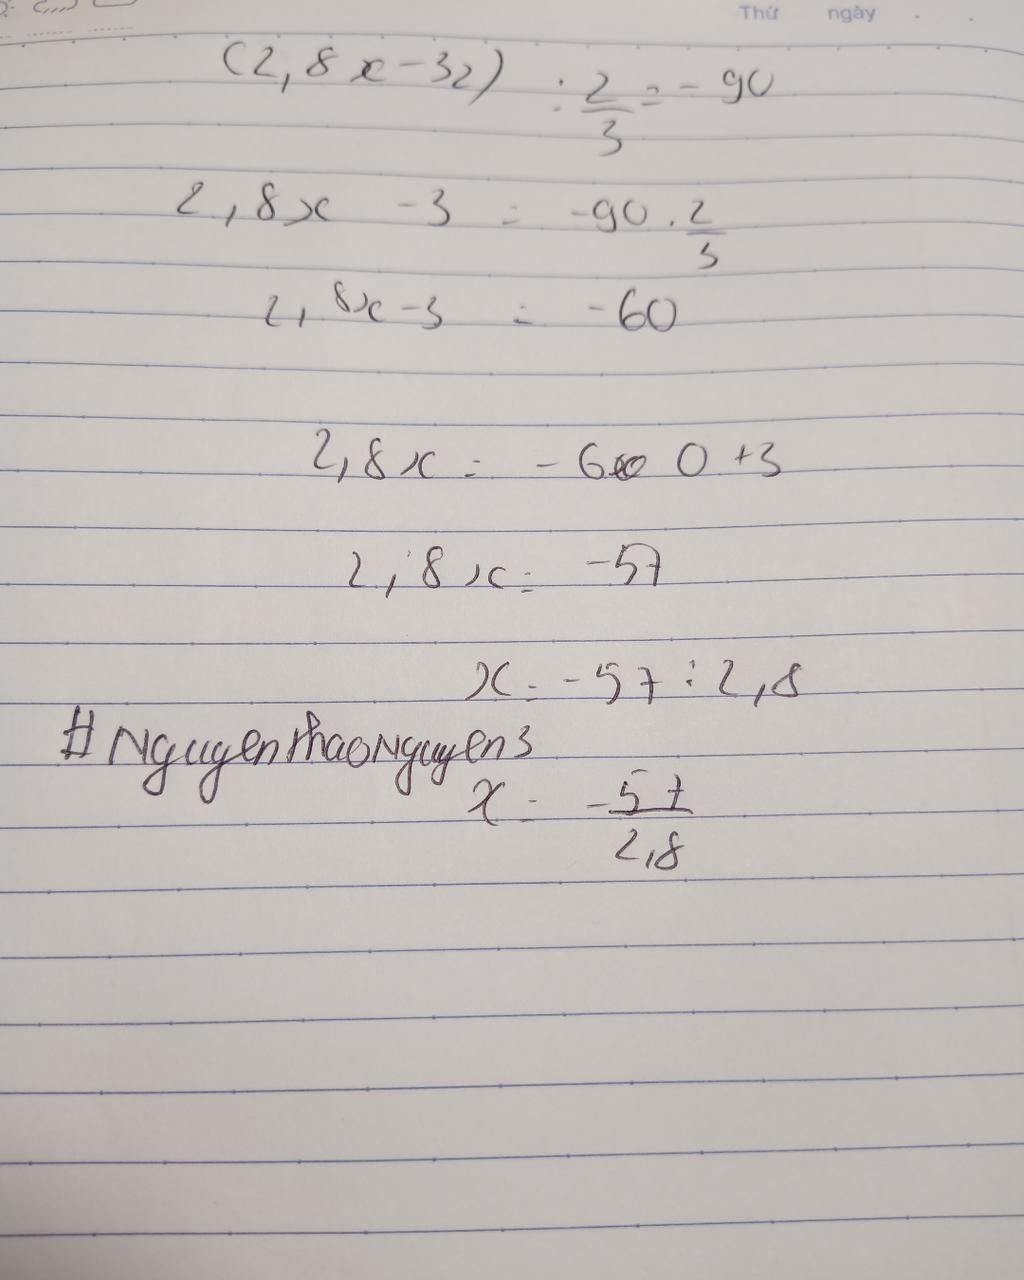 Thứ ngày . .
(2,8x-32) : 2/3 = - 90
2,8x - 3 = -90 . 2/3
2,8x-3 = -60
2,8x = - 60 0 +3
2,8x = -57
x = -57 : 2,8
#NguyenthaoNguyen3
x = -57/2,8